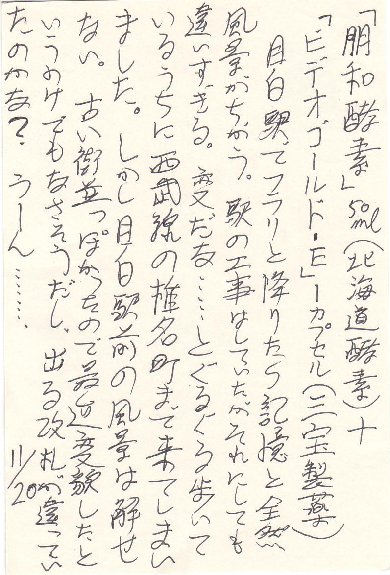 「朋和酵素」50ml（北海道酵素）＋
「ビデオゴールド・E」一カプセル（三宝製薬）
目白駅でフラリと降りたら記憶と全然
風景がちがう。駅の工事はしていたがそれにしても
違いすぎる。変だな……とぐるぐる歩いて
いるうちに西武線の椎名町まで来てしまい
ました。しかし目白駅前の風景は解せ
ない。古い街並っぽかったので最近変貌したと
いうわけでもなさそうだし、出る改札が違ってい
たのかな？うーん………
11/20